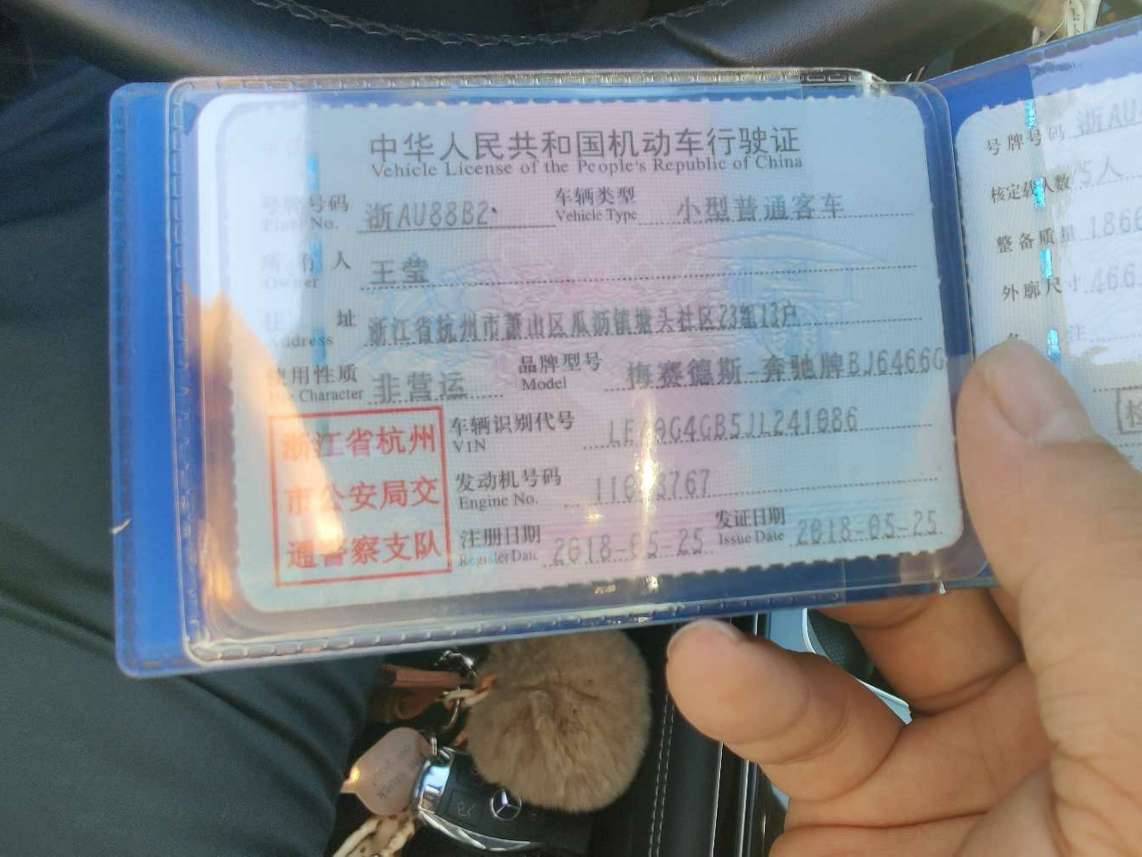 中华人民共和国机动车行驶证
Vehicle License of the People's Republic of China
号牌号码 浙AU88B2 车辆类型 小型普通客车
Plate No. Vehicle Type
所有人 王莹
Owner
住址 浙江省杭州市萧山区瓜沥镇塘头社区23组13户
Address
使用性质 非营运 品牌型号 梅赛德斯-奔驰牌BJ6466G
Use Character Model
浙江省杭州
市公安局交
通警察支队
车辆识别代号
VIN
发动机号码
Engine No.
注册日期 2018-05-25 发证日期 2018-05-25
Register Date Issue Date
号牌号码 浙AU
核定载人数 5人
整备质量 186
外廓尺寸 466
注